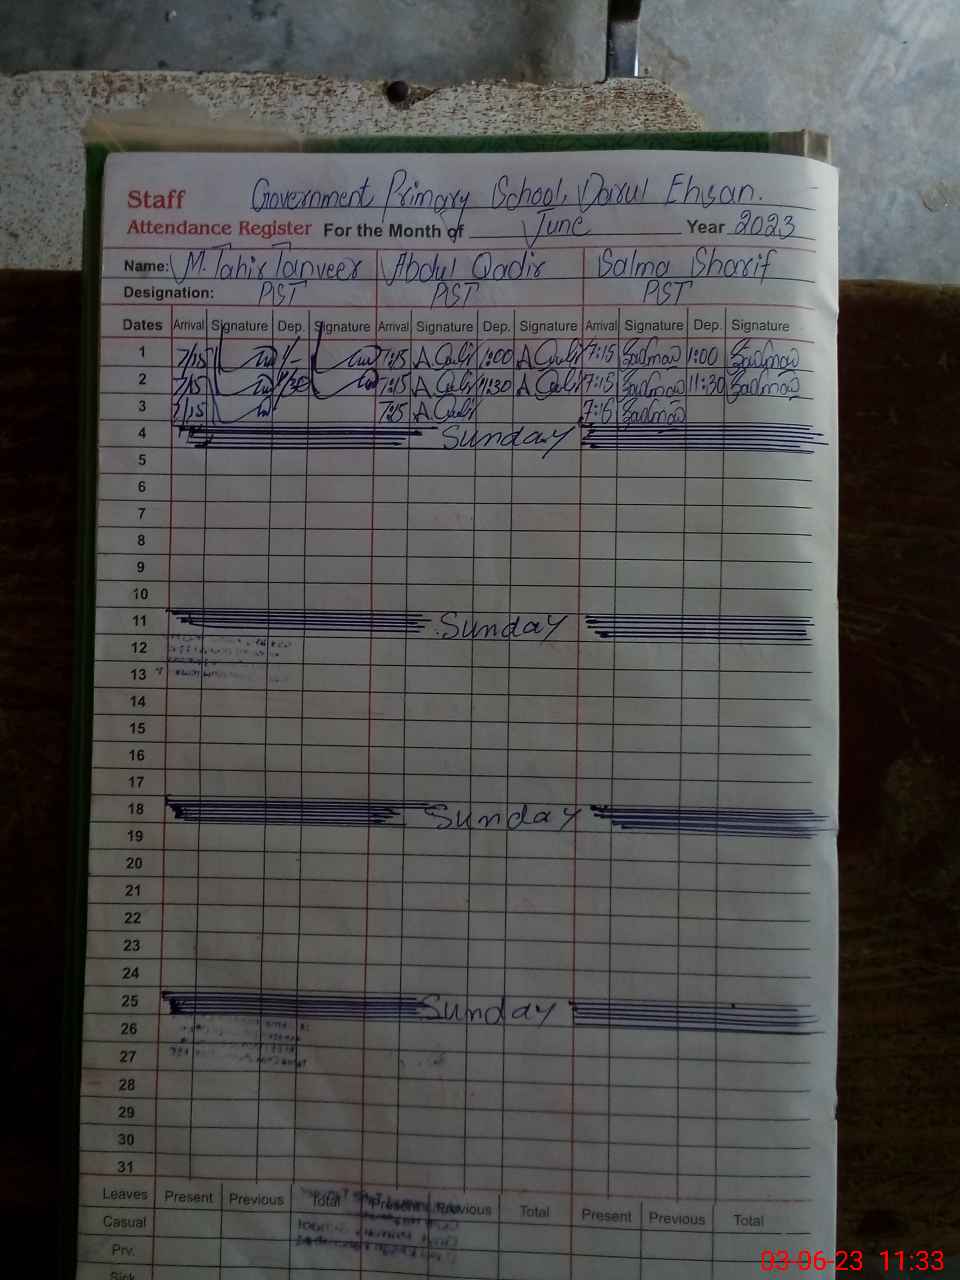 Staff Government Primary School, Darul Ehsan.
Attendance Register For the Month of June Year 2023
Name: M. Tahir Tanveer Abdul Qadir Salma Sharif
Designation: PST PST PST
Dates Arrival Signature Dep. Signature Arrival Signature Dep. Signature Arrival Signature Dep. Signature
1 7/15 1/- 7:15 A Qadir 1:00 A Qadir 7:15 1:00
2 7/15 11/30 7:15 A Qadir 11:30 A Qadir 7:15 11:30
3 7/15 7:15 A Qadir 7:15
4 Sunday
5
6
7
8
9
10
11 Sunday
12
13
14
15
16
17
18 Sunday
19
20
21
22
23
24
25 Sunday
26
27
28
29
30
31
Leaves Present Previous Total Present Previous Total Present Previous Total
Casual
Prv.
Sick
03-06-23 11:33